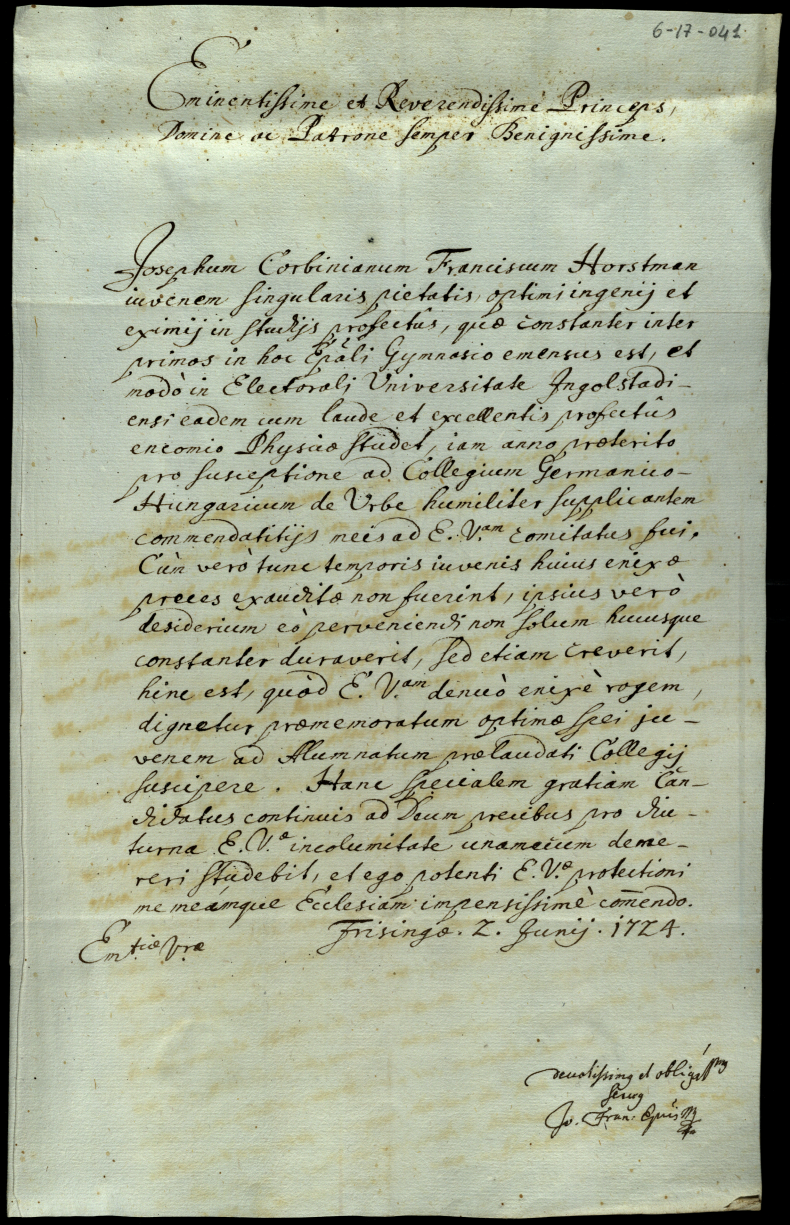 6-17-041
Eminentissime et Reverendissime Princeps,
Domine ac Patrone semper Benignissime.
Josephum Corbinianum Franciscum Horstman
iuvenem singularis pietatis, optimi ingenij et
eximij in studijs profectûs, quæ constanter inter
primos in hoc Epâli Gymnasio emensus est, et
modò in Electorali Universitate Ingolstadi-
ensi eadem cum laude et excellentis profectûs
encomio Physicæ studet, iam anno præterito
pro susceptione ad Collegium Germanico-
Hungaricum de Urbe humiliter supplicantem
commendatitijs meis ad E. V.am comitatus fui.
Cùm verò tunc temporis iuvenis huius enixæ
preces exauditæ non fuerint, ipsius verò
desiderium eò perveniendi non solum hucusque
constanter duraverit, sed etiam creverit,
hinc est, quòd E. V.am denuò enixè rogem,
dignetur præmemoratum optimæ spei ju-
venem ad Alumnatum prælaudati Collegij
suscipere. Hanc specialem gratiam Can-
didatus continuis ad Deum precibus pro diu-
turna E. V.æ incolumitate unamecum deme-
reri studebit, et ego potenti E. V.æ protectioni
me meámque Ecclesiam impensissimè com̄endo.
Frisingæ. 2. Junij. 1724.
Em.tiæ V.ræ
devotissimg et obligatssimg
servg
Jo. Fran: Epūs